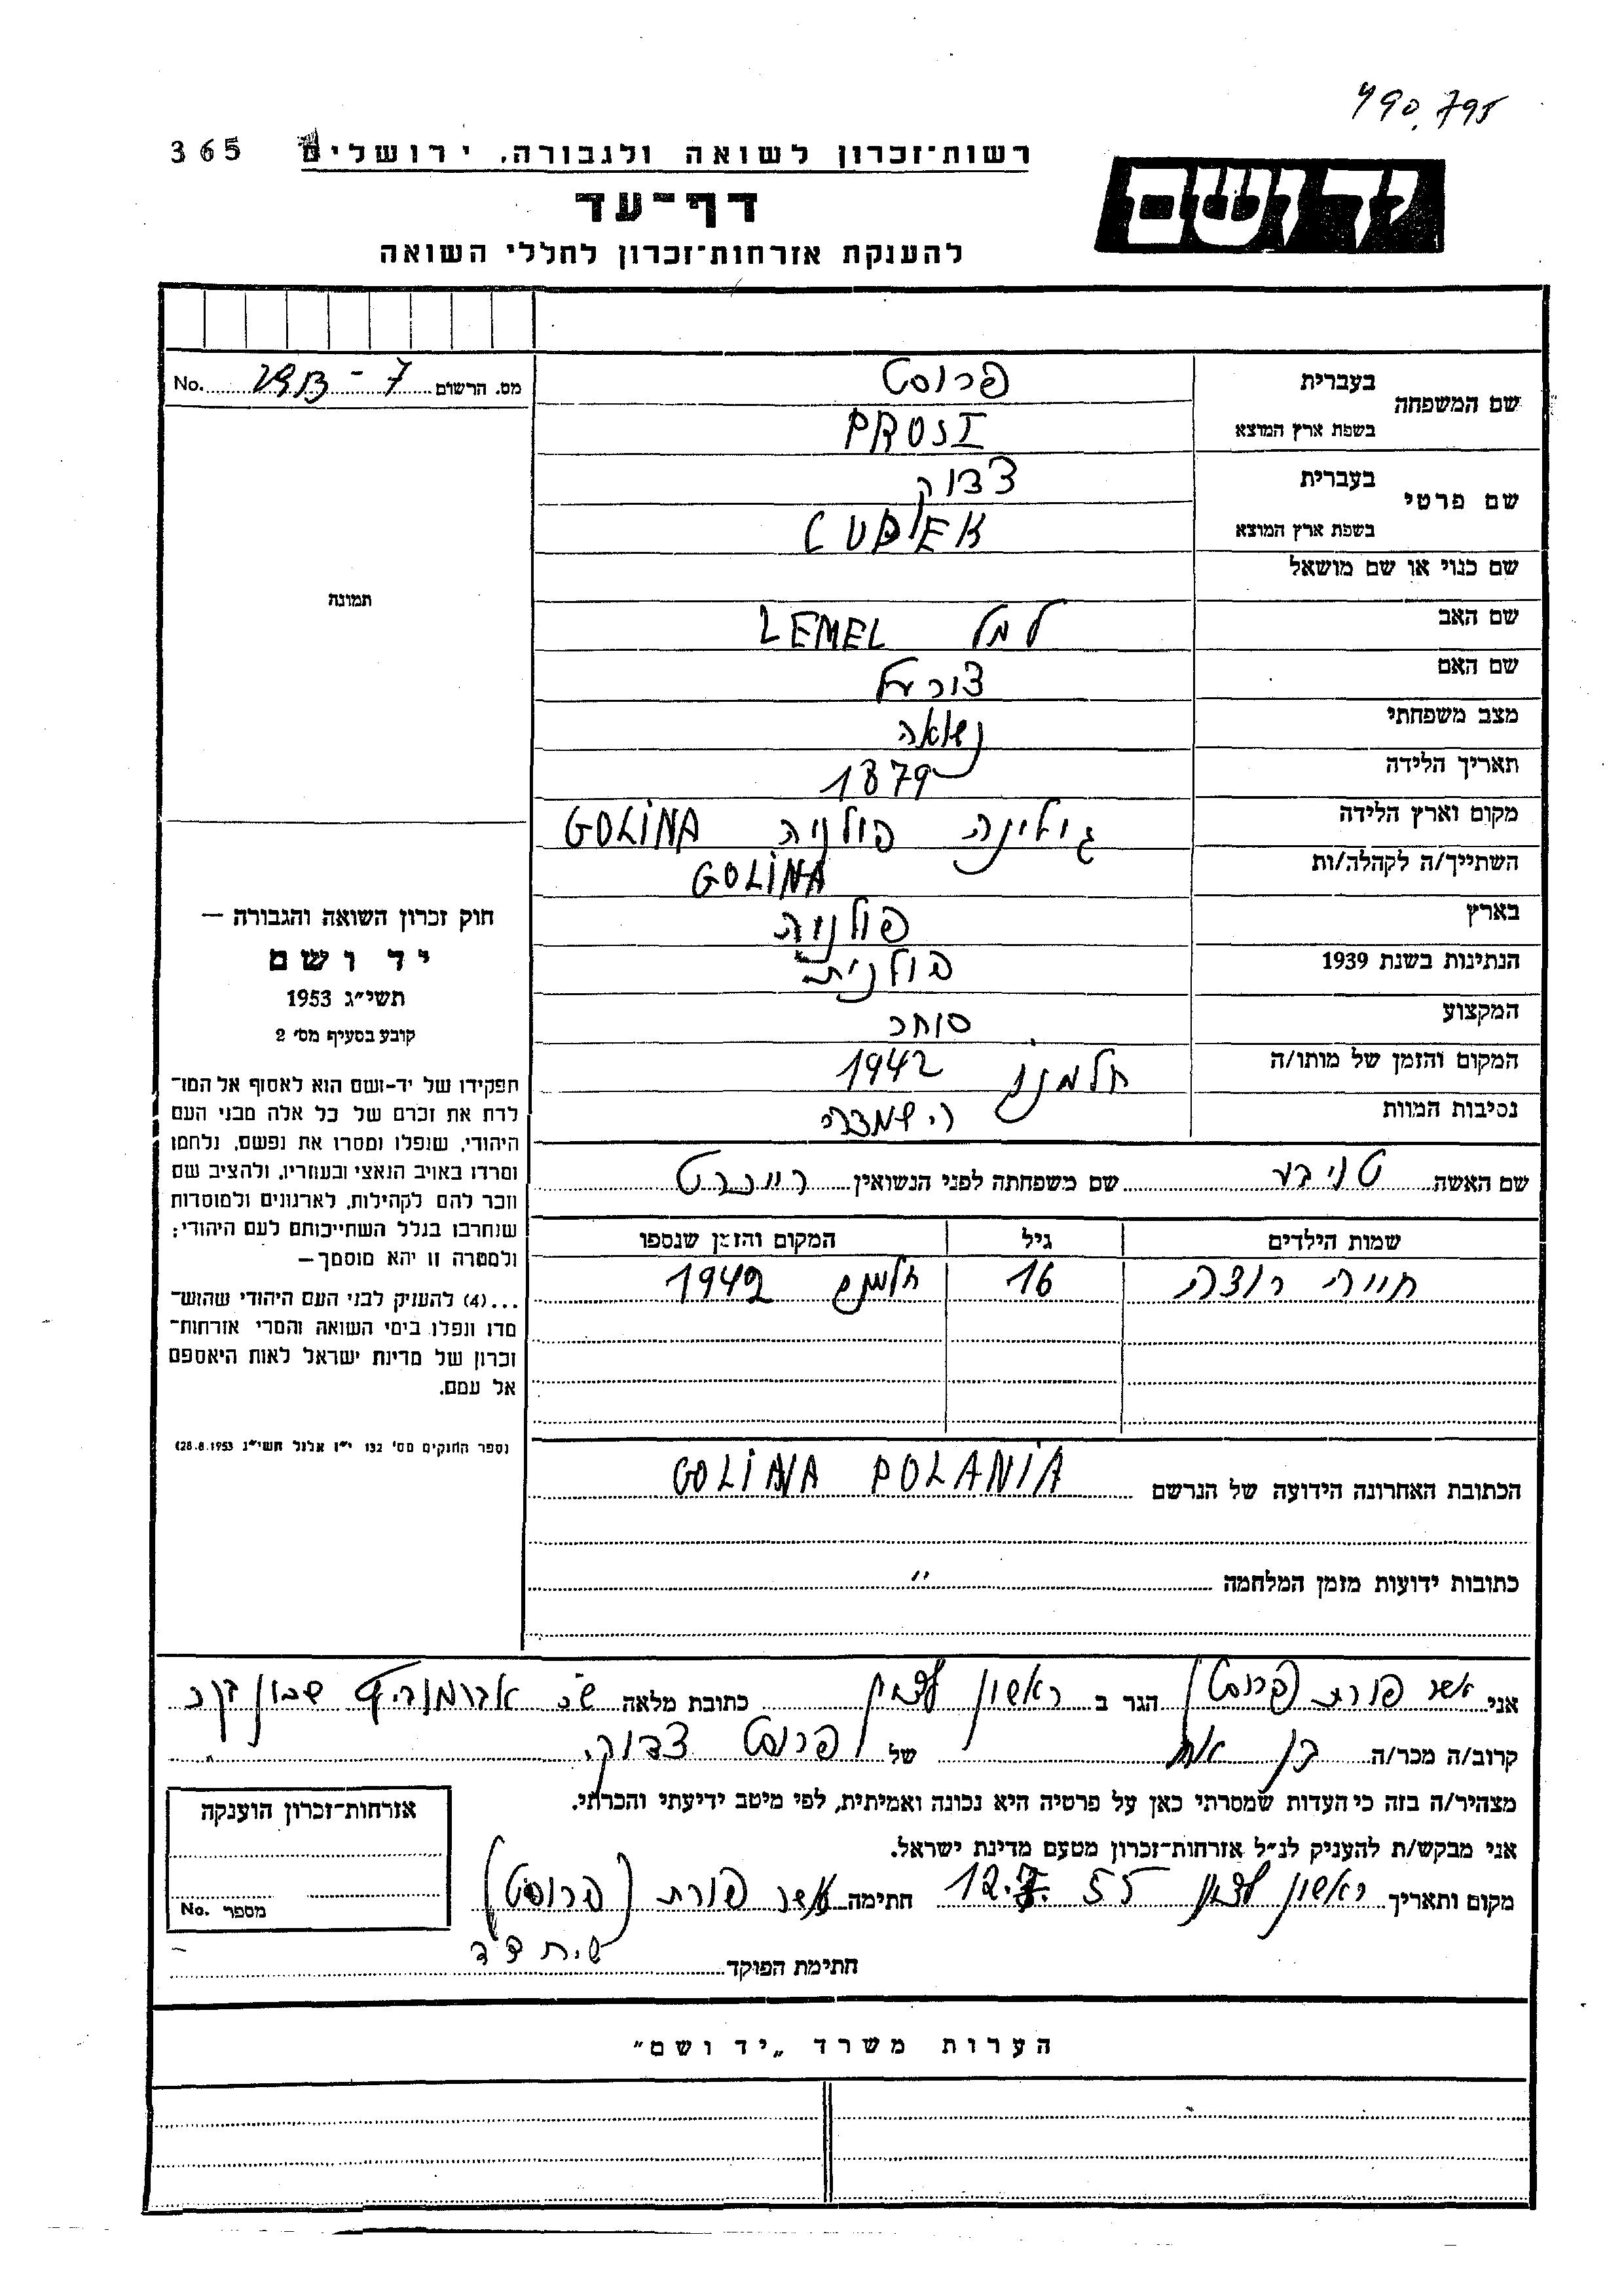 490.795
365
רשות־זכרון לשואה ולגבורה. ירושלים
ידושם
דף־עד
להענקת אזרחות־זכרון לחללי השואה
מס. הרשום No.
שם המשפחה בעברית פרוסט
בשפת ארץ המוצא PROST
שם פרטי בעברית צדוק
בשפת ארץ המוצא CUDEK
שם כנוי או שם מושאל
שם האב למל LEMEL
שם האם
מצב משפחתי נשואה
תאריך הלידה 1879
מקום וארץ הלידה גולינה פולניה GOLINA
השתייך/ה לקהלה/ות GOLINA
בארץ פולניה
הנתינות בשנת 1939 פולנית
המקצוע סוחר
המקום והזמן של מותו/ה חלמנו 1942
נסיבות המוות השמדה
תמונה
חוק זכרון השואה והגבורה —
יד ושם
תשי״ג 1953
קובע בסעיף מס׳ 2
תפקידו של יד-ושם הוא לאסוף אל המו־
לדת את זכרם של כל אלה מבני העם
היהודי, שנפלו ומסרו את נפשם, נלחמו
ומרדו באויב הנאצי ובעוזריו, ולהציב שם
וזכר להם לקהילות, לארגונים ולמוסדות
שנחרבו בגלל השתייכותם לעם היהודי;
ולמטרה זו יהא מוסמך—
...(4) להעניק לבני העם היהודי שהוש־
מדו ונפלו בימי השואה והמרי אזרחות־
זכרון של מדינת ישראל לאות היאספם
אל עמם.
(ספר החוקים מס׳ 132 י״ז אלול תשי״ג 28.8.1953)
שם האשה טויבע שם משפחתה לפני הנשואין
שמות הילדים גיל המקום והזמן שנספו
חוויה רוצה 16 חלמנו 1942
הכתובת האחרונה הידועה של הנרשם GOLINA POLANIA
כתובות ידועות מזמן המלחמה "
אני אשר פורת (פרוסט) הגר ב ראשון לציון כתובת מלאה
קרוב/ה מכר/ה בן של פרוסט צדוק
מצהיר/ה בזה כי העדות שמסרתי כאן על פרטיה היא נכונה ואמיתית, לפי מיטב ידיעתי והכרתי.
אני מבקש/ת להעניק לנ״ל אזרחות־זכרון מטעם מדינת ישראל.
מקום ותאריך ראשון לציון 12.7.55 חתימה אשר פורת (פרוסט)
חתימת הפוקד
אזרחות־זכרון הוענקה
מספר No.
הערות משרד „יד ושם״